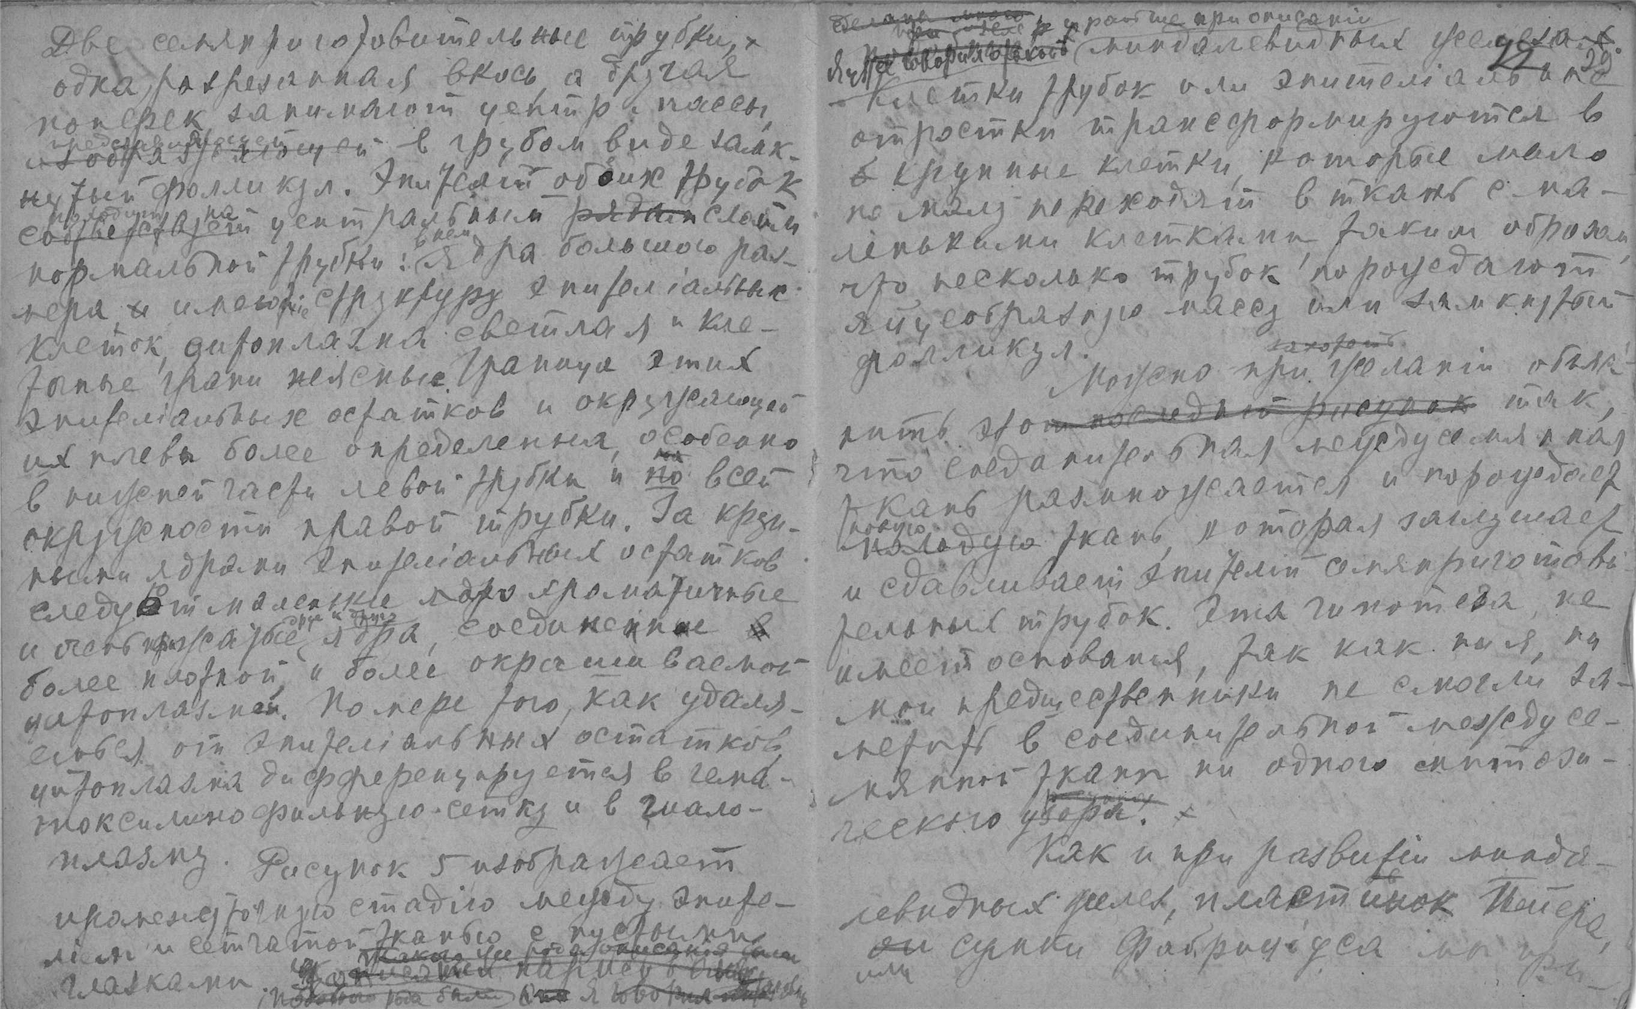 Две семяприготовительные трубки,
одна, разрезанная вкось, а другая
поперек занимают центр массы,
представляющей
изображающей в грубом виде замк-
нутый фолликул. Эпителий обоих трубок
походит на
соответствует центральным рядам слоям
нормальной трубки: ядра большого раз-
мера и имеют структуру эпителіальных
клеток, цитоплазма светлая и кле-
точные грани неясные. Граница этих
эпителіальных остатков и окружающей
их плевы более определенная, особенно
в нижней части левой трубки и по всей
окружности правой трубки. За круп-
ными ядрами эпителіальных остатков
следует маленькие хроматичные
и очень ядра, соединенные в
более плотной и более окрашиваемой
цитоплазмей. По мере того, как удаля-
ешься от эпителіальных остатков,
цитоплазма дифференцируется в гема-
токсилинофильную сетку и в гиало-
плазму. Рисунок 5 изображает
промежуточную стадію между эпите-
ліем и сетчатой тканью с пустыми
глазками.
сделана много
раньше при описаніи
я уже говорил миндалевидных железах.
29
Клетки трубок или эпителіальные
отростки трансформируются в
крупные клетки, которые мало
по малу переходят в ткань с ма-
ленькими клетками, таким образом,
что несколько трубок порождают
яйцеобразную массу или замкнутый
фолликул.
Можно при желаніи объяс-
нить этот последний рисунок так,
что соединительная междусемянная
ткань размножается и порождает
новую
молодую ткань, которая заглушает
и сдавливает эпителий семяприготови-
тельных трубок. Эта гипотеза не
имеет основания, так как ни я, ни
мои предшественники не смогли за-
метить в соединительной междусе-
мянной ткани ни одного митози-
ческого узора.
Как и при развитіи минда-
левидных желез, пластинок Пейера,
или сумки Фабриціуса мы при-